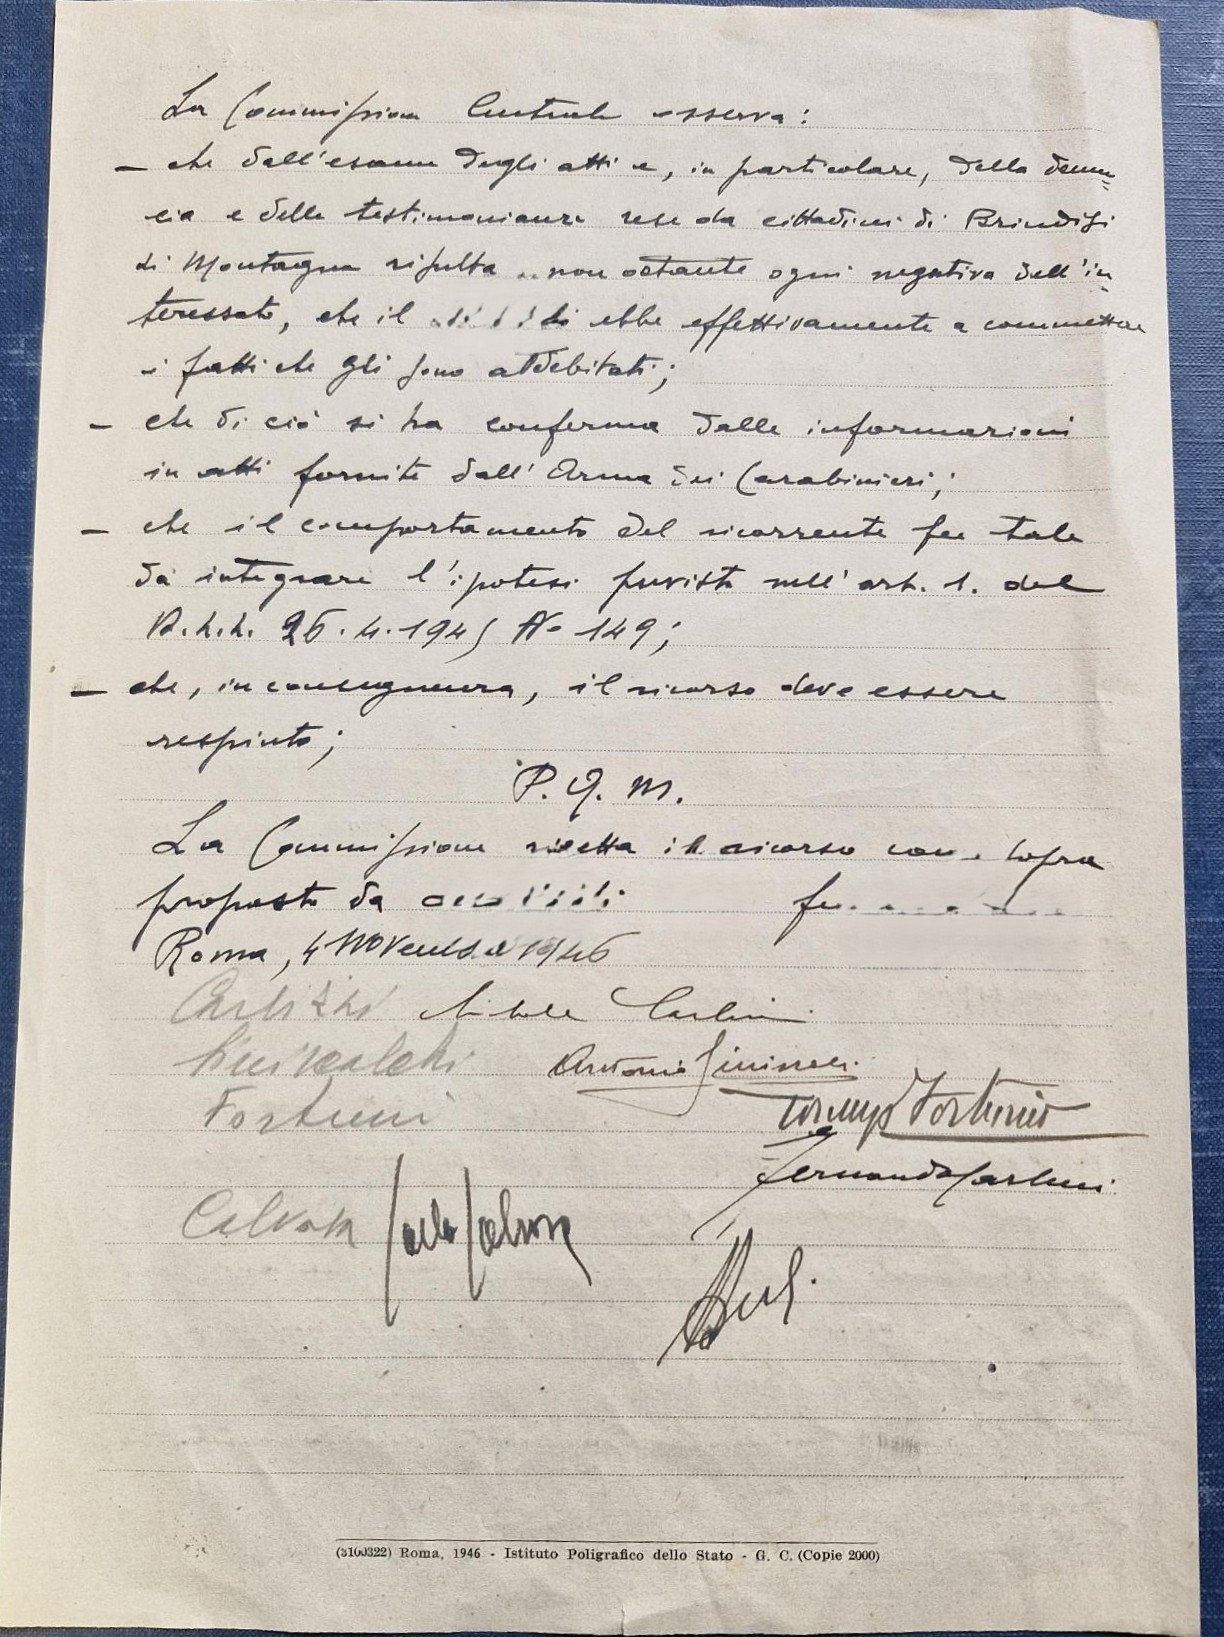 La Commissione Centrale osserva:
– che dall'esame degli atti e, in particolare, della denun=
cia e delle testimonianze rese da cittadini di Brindisi
di Montagna risulta non ostante ogni negativa dell'in
teressato, che il ebbe effettivamente a commettere
i fatti che gli sono addebitati;
– che di ciò si ha conferma dalle informazioni
in atti fornite dall'Arma dei Carabinieri;
– che il comportamento del ricorrente fu tale
da integrare l'ipotesi prevista nell'art. 1. del
D.L.L. 26.4.1945 No 149;
– che, in conseguenza, il ricorso deve essere
respinto;
P. Q. M.
La Commissione rigetta il ricorso come sopra
proposto da
Roma, 4 Novembre 1946
Michele
Antonio
Fortuni Fortunio
Fernando
Calvosa Carlo Calvosa
(3100322) Roma, 1946 - Istituto Poligrafico dello Stato - G. C. (Copie 2000)